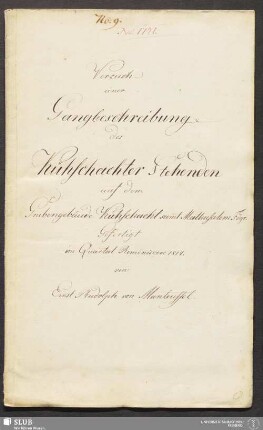 Versuch
einer
Gangbeschreibung
des
Kuhschachter Stehenden
auf dem
Grubengebäude Kuhschacht samt Methusalem Fdgr.
Gefertigt
im Quartal Reminiscere 1814.
von
Ernst Rudolph von Manteuffel
SLUB